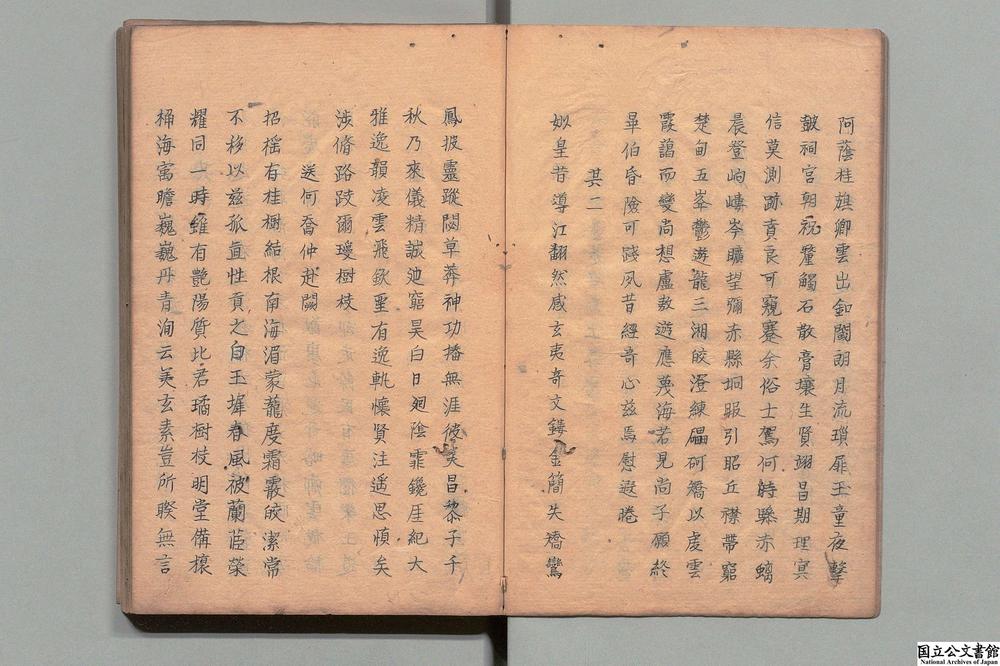 阿蔭桂旗卿雲出釦闥朗月流瑣扉玉童夜擊
皷祠宮朝祝釐觸石散膏壤生賢翊昌期理㝠
信莫測跡賁良可窺蹇余俗士駕何時驂赤螭
晨登岣嶁岑曠望彌赤縣坰眼引昭丘襟帶窮
楚甸五峯鬱遊龍三湘皎澄練礧砢矯以虔雲
霞藹而變尚想盧敖遊應蔑海若見尚子願終
畢伯昏險可踐夙昔經竒心茲焉慰遐睠
其二
姒皇昔導江翻然感玄夷竒文鏤金簡失矯鸞
鳳披靈蹤閟草莽神功播無涯彼美昌黎子千
秋乃來儀精誠池窮昊白日廻陰霏鑱厓紀大
雅逸韻凌雲飛欽聖有逸軌懷賢注遙思慎矣
涉脩路跂爾瓊樹枝
送何喬仲赴闕
招搖有桂樹結根南海湄蒙蘢度霜霰皎潔常
不移以茲孤直性貢之白玉墀春風被蘭茝榮
耀同一時雖有艷陽質比君璚樹枝明堂備榱
桷海寓瞻巍巍丹青洵云美玄素豈所暌無言
国立公文書館
National Archives of Japan